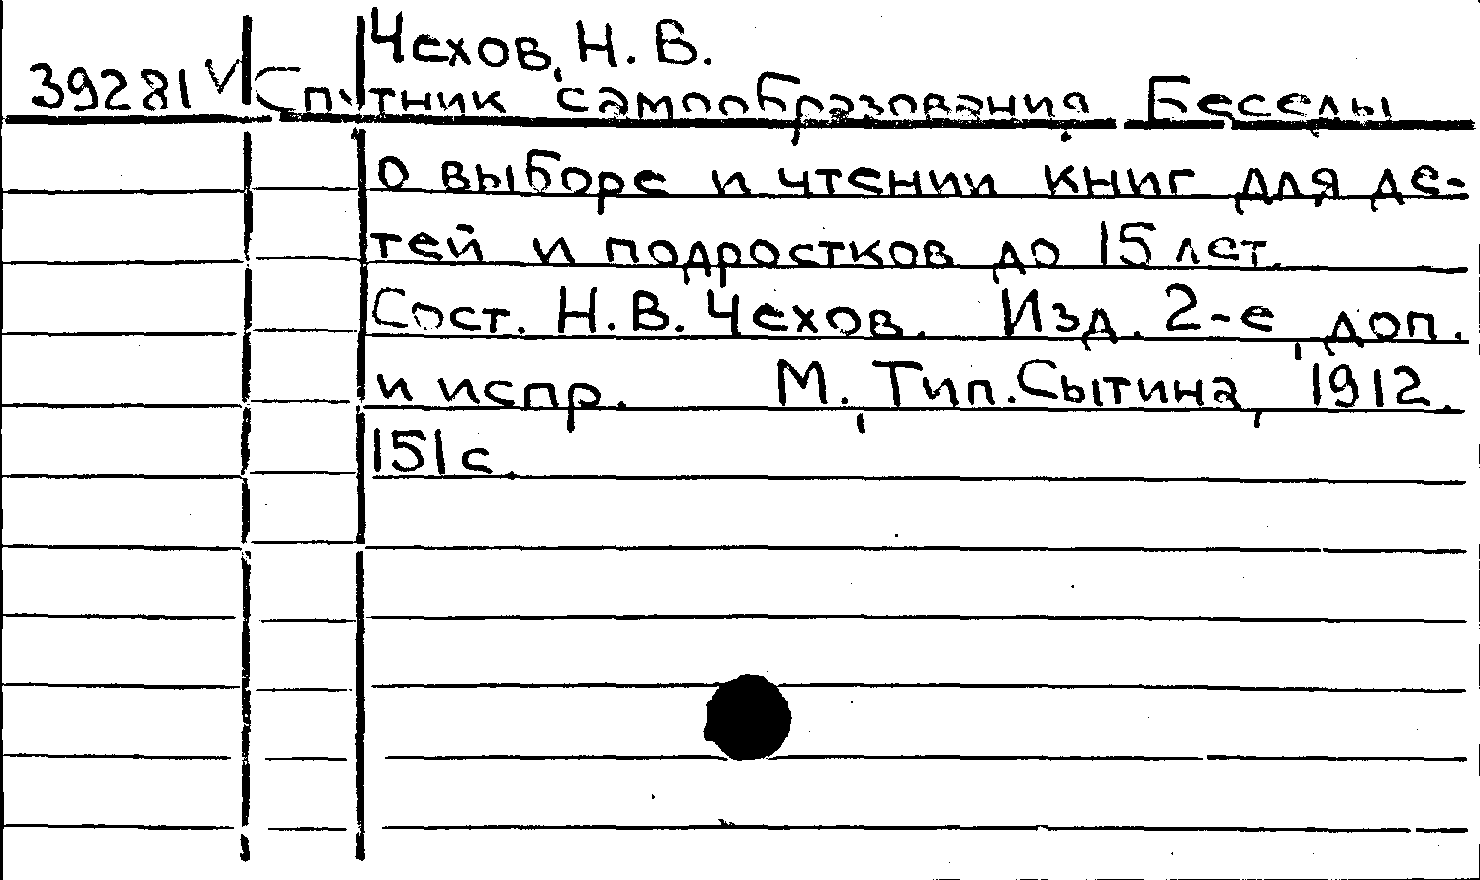 Чехов, Н. В.
39281 V Спутник самообразования. Беседы
о выборе и чтении книг для де-
тей и подростков до 15 лет.
Сост. Н. В. Чехов. Изд. 2-е, доп.
и испр. М., Тип. Сытина, 1912.
151 с.